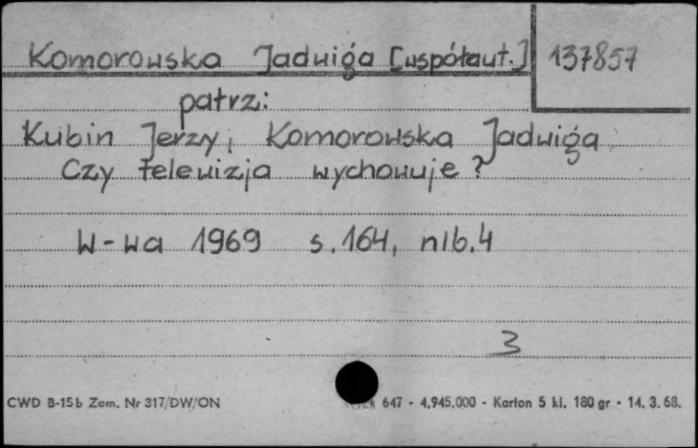 Komorowska Jadwiga [współaut.] 137857
patrz:
Kubin Jerzy, Komorowska Jadwiga
Czy telewizja wychowuje?
W-wa 1969 s. 164, nlb. 4
3
CWD B-15b Zam. Nr 317/DW/ON 647 - 4.945.000 - Karton 5 kl. 180 gr - 14. 3. 68.